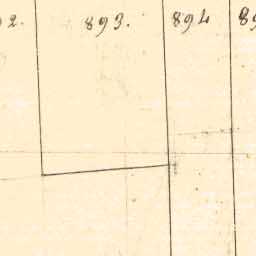 2. 893. 894 89